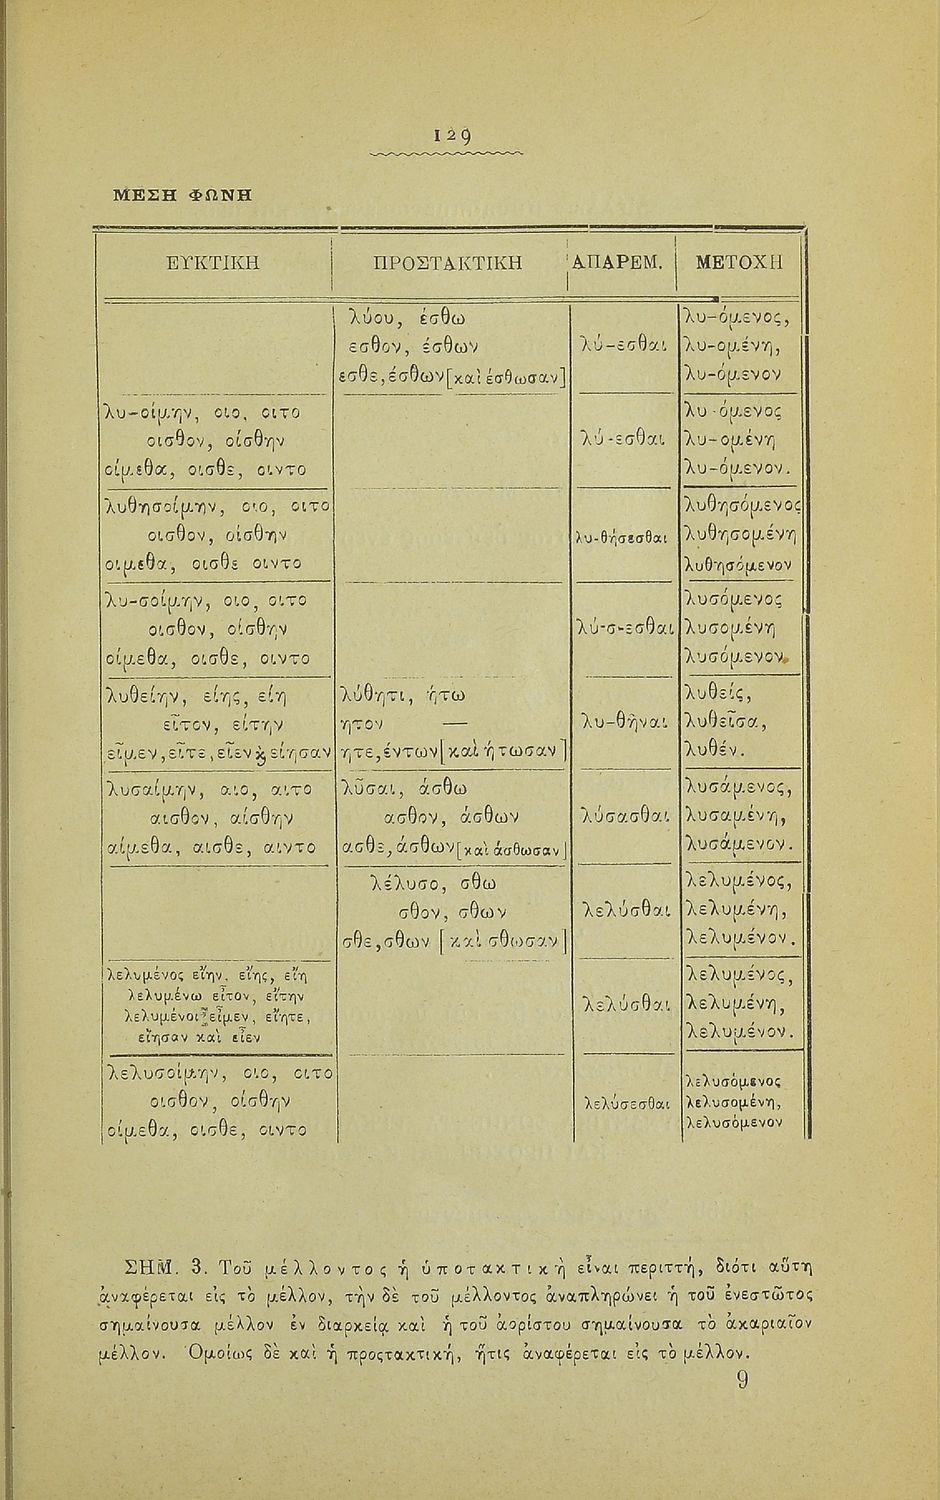 129
ΜΕΣΗ ΦΩΝΗ
ΕΥΚΤΙΚΗ ΠΡΟΣΤΑΚΤΙΚΗ ΑΠΑΡΕΜ. ΜΕΤΟΧΗ
λύου, έσθω
εσθον, έσθων
εσθε, έσθων [καὶ έσθωσαν]
λύ-εσθαι
λυ-όμενος,
λυ-ομένη,
λυ-όμενον
λυ-οίμην, οιο, οιτο
οισθον, οίσθην
οίμεθα, οισθε, οιντο
λύ-εσθαι
λυ-όμενος
λυ-ομένη
λυ-όμενον.
λυθησοίμην, οιο, οιτο
οισθον, οίσθην
οιμεθα, οισθε οιντο
λυ-θήσεσθαι
λυθησόμενος
λυθησομένη
λυθησόμενον
λυ-σοίμην, οιο, οιτο
οισθον, οίσθην
οίμεθα, οισθε, οιντο
λύ-σ-εσθαι
λυσόμενος
λυσομένη
λυσόμενον.
λυθείην, είης, είη
εῖτον, είτην
εῖμεν, εῖτε, εῖεν ϗ είησαν
λύθητι, ήτω
ητον —
ητε, έντων [καὶ ήτωσαν]
λυ-θῆναι
λυθείς,
λυθεῖσα,
λυθέν.
λυσαίμην, αιο, αιτο
αισθον, αίσθην
αίμεθα, αισθε, αιντο
λῦσαι, άσθω
ασθον, άσθων
ασθε, άσθων [καὶ άσθωσαν]
λύσασθαι
λυσάμενος,
λυσαμένη,
λυσάμενον.
λέλυσο, σθω
σθον, σθων
σθε, σθων [καὶ σθωσαν]
λελύσθαι
λελυμένος,
λελυμένη,
λελυμένον.
λελυμένος εἴην, εἴης, εἴη
λελυμένω εἶτον, εἴτην
λελυμένοι εἶμεν, εἴητε,
εἴησαν καὶ εἶεν
λελύσθαι
λελυμένος,
λελυμένη,
λελυμένον.
λελυσοίμην, οιο, οιτο
οισθον, οίσθην
οίμεθα, οισθε, οιντο
λελύσεσθαι
λελυσόμενος
λελυσομένη,
λελυσόμενον
ΣΗΜ. 3. Τοῦ μέλλοντος ἡ ὑποτακτικὴ εἶναι περιττή, διότι αὕτη
ἀναφέρεται εἰς τὸ μέλλον, τὴν δὲ τοῦ μέλλοντος ἀναπληρώνει ἡ τοῦ ἐνεστῶτος
σημαίνουσα μέλλον ἐν διαρκείᾳ καὶ ἡ τοῦ ἀορίστου σημαίνουσα τὸ ἀκαριαῖον
μέλλον. Ὁμοίως δὲ καὶ ἡ προςτακτική, ἥτις ἀναφέρεται εἰς τὸ μέλλον.
9